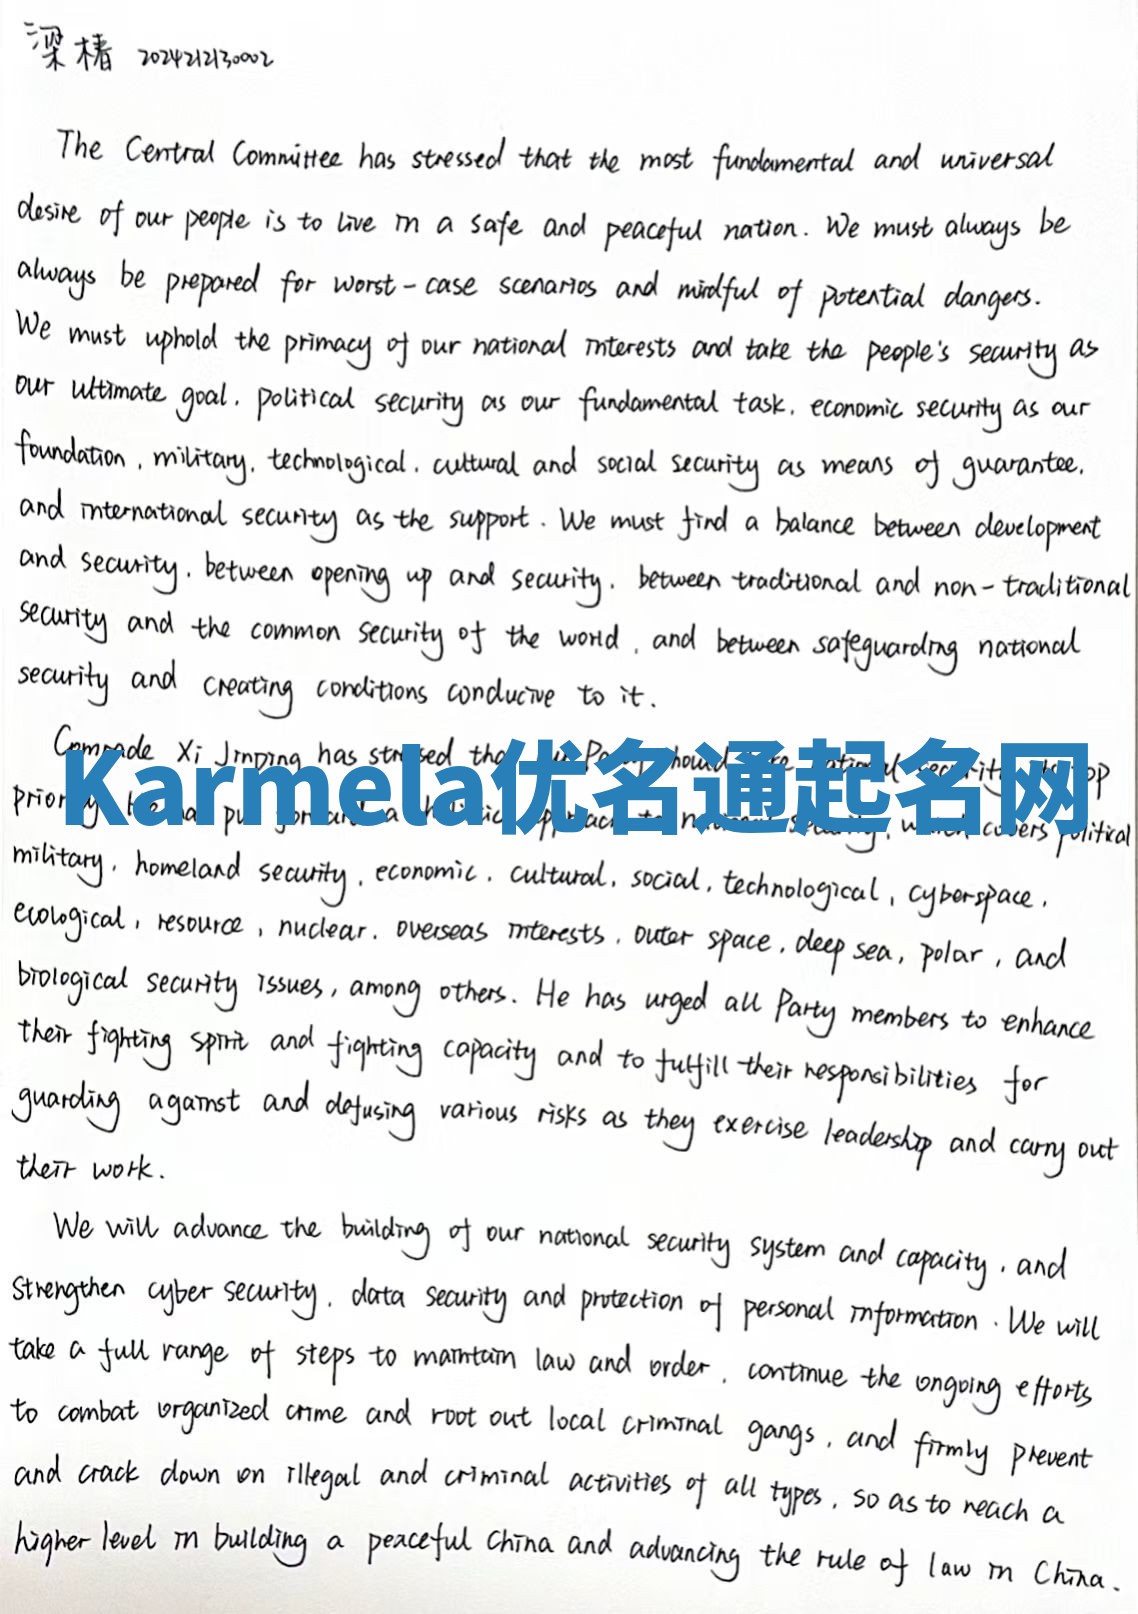 梁椿 2024212130002
The Central Committee has stressed that the most fundamental and universal
desire of our people is to live in a safe and peaceful nation. We must always be
always be prepared for worst-case scenarios and mindful of potential dangers.
We must uphold the primacy of our national interests and take the people's security as
our ultimate goal, political security as our fundamental task, economic security as our
foundation, military, technological, cultural and social security as means of guarantee,
and international security as the support. We must find a balance between development
and security, between opening up and security, between traditional and non-traditional
security and the common security of the world, and between safeguarding national
security and creating conditions conducive to it.
Comrade Xi Jinping has stressed that Party should national security top
Karmela优名通起名网
priority. He has put forward a holistic approach to national security, which covers political
military, homeland security, economic, cultural, social, technological, cyberspace,
ecological, resource, nuclear, overseas interests, outer space, deep sea, polar, and
biological security issues, among others. He has urged all Party members to enhance
their fighting spirit and fighting capacity and to fulfill their responsibilities for
guarding against and defusing various risks as they exercise leadership and carry out
their work.
We will advance the building of our national security system and capacity, and
strengthen cyber security, data security and protection of personal information. We will
take a full range of steps to maintain law and order, continue the ongoing efforts
to combat organized crime and root out local criminal gangs, and firmly prevent
and crack down on illegal and criminal activities of all types, so as to reach a
higher level in building a peaceful China and advancing the rule of law in China.